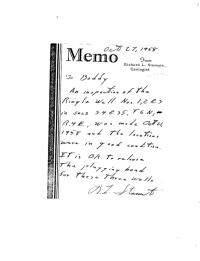 Oct 27, 1958
Memo
From
Richard L. Stamets,
Geologist
To Doddy
An inspection of the
Ringle Well No. 1, 2 & 3
in secs 34 & 35, T6N,
R4E, was made Oct
1958 and the locations
were in good condition.
IT is OK To release
the plugging bond
for these three wells